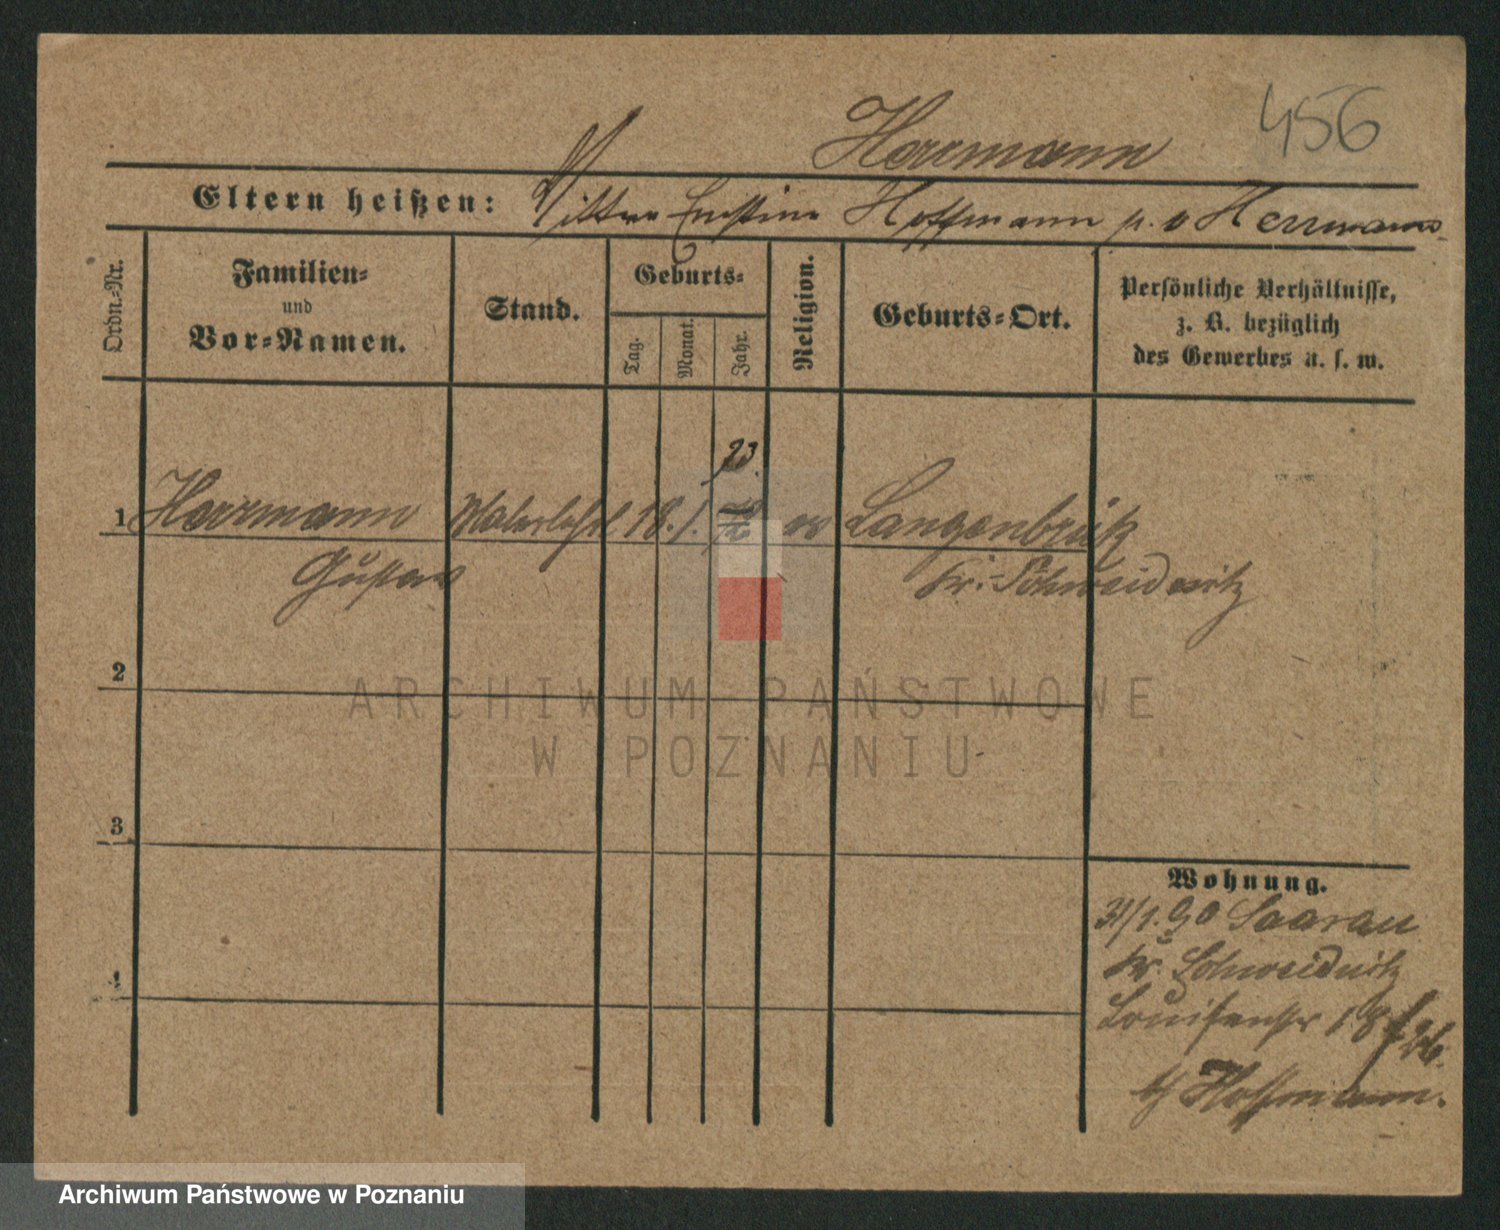 456
Herrmann
Eltern heißen: Mutter Ernstine Hoffmann p. v Herrmann
Ordn.-Nr.
Familien-
und
Vor-Namen.
Stand.
Geburts-
Tag.
Monat.
Jahr.
Religion.
Geburts-Ort.
Persönliche Verhältnisse,
z. B. bezüglich
des Gewerbes u. s. w.
73.
1 Herrmann Malerlehrl 18. 1. ev Langenbrütz
Gustav Kr. Schweidnitz
2
3
4
Wohnung.
31/1. 90 Saarau
Kr. Schweidnitz
Louisenstr 18
b/ Hoffmann.
ARCHIWUM PAŃSTWOWE
W POZNANIU
Archiwum Państwowe w Poznaniu